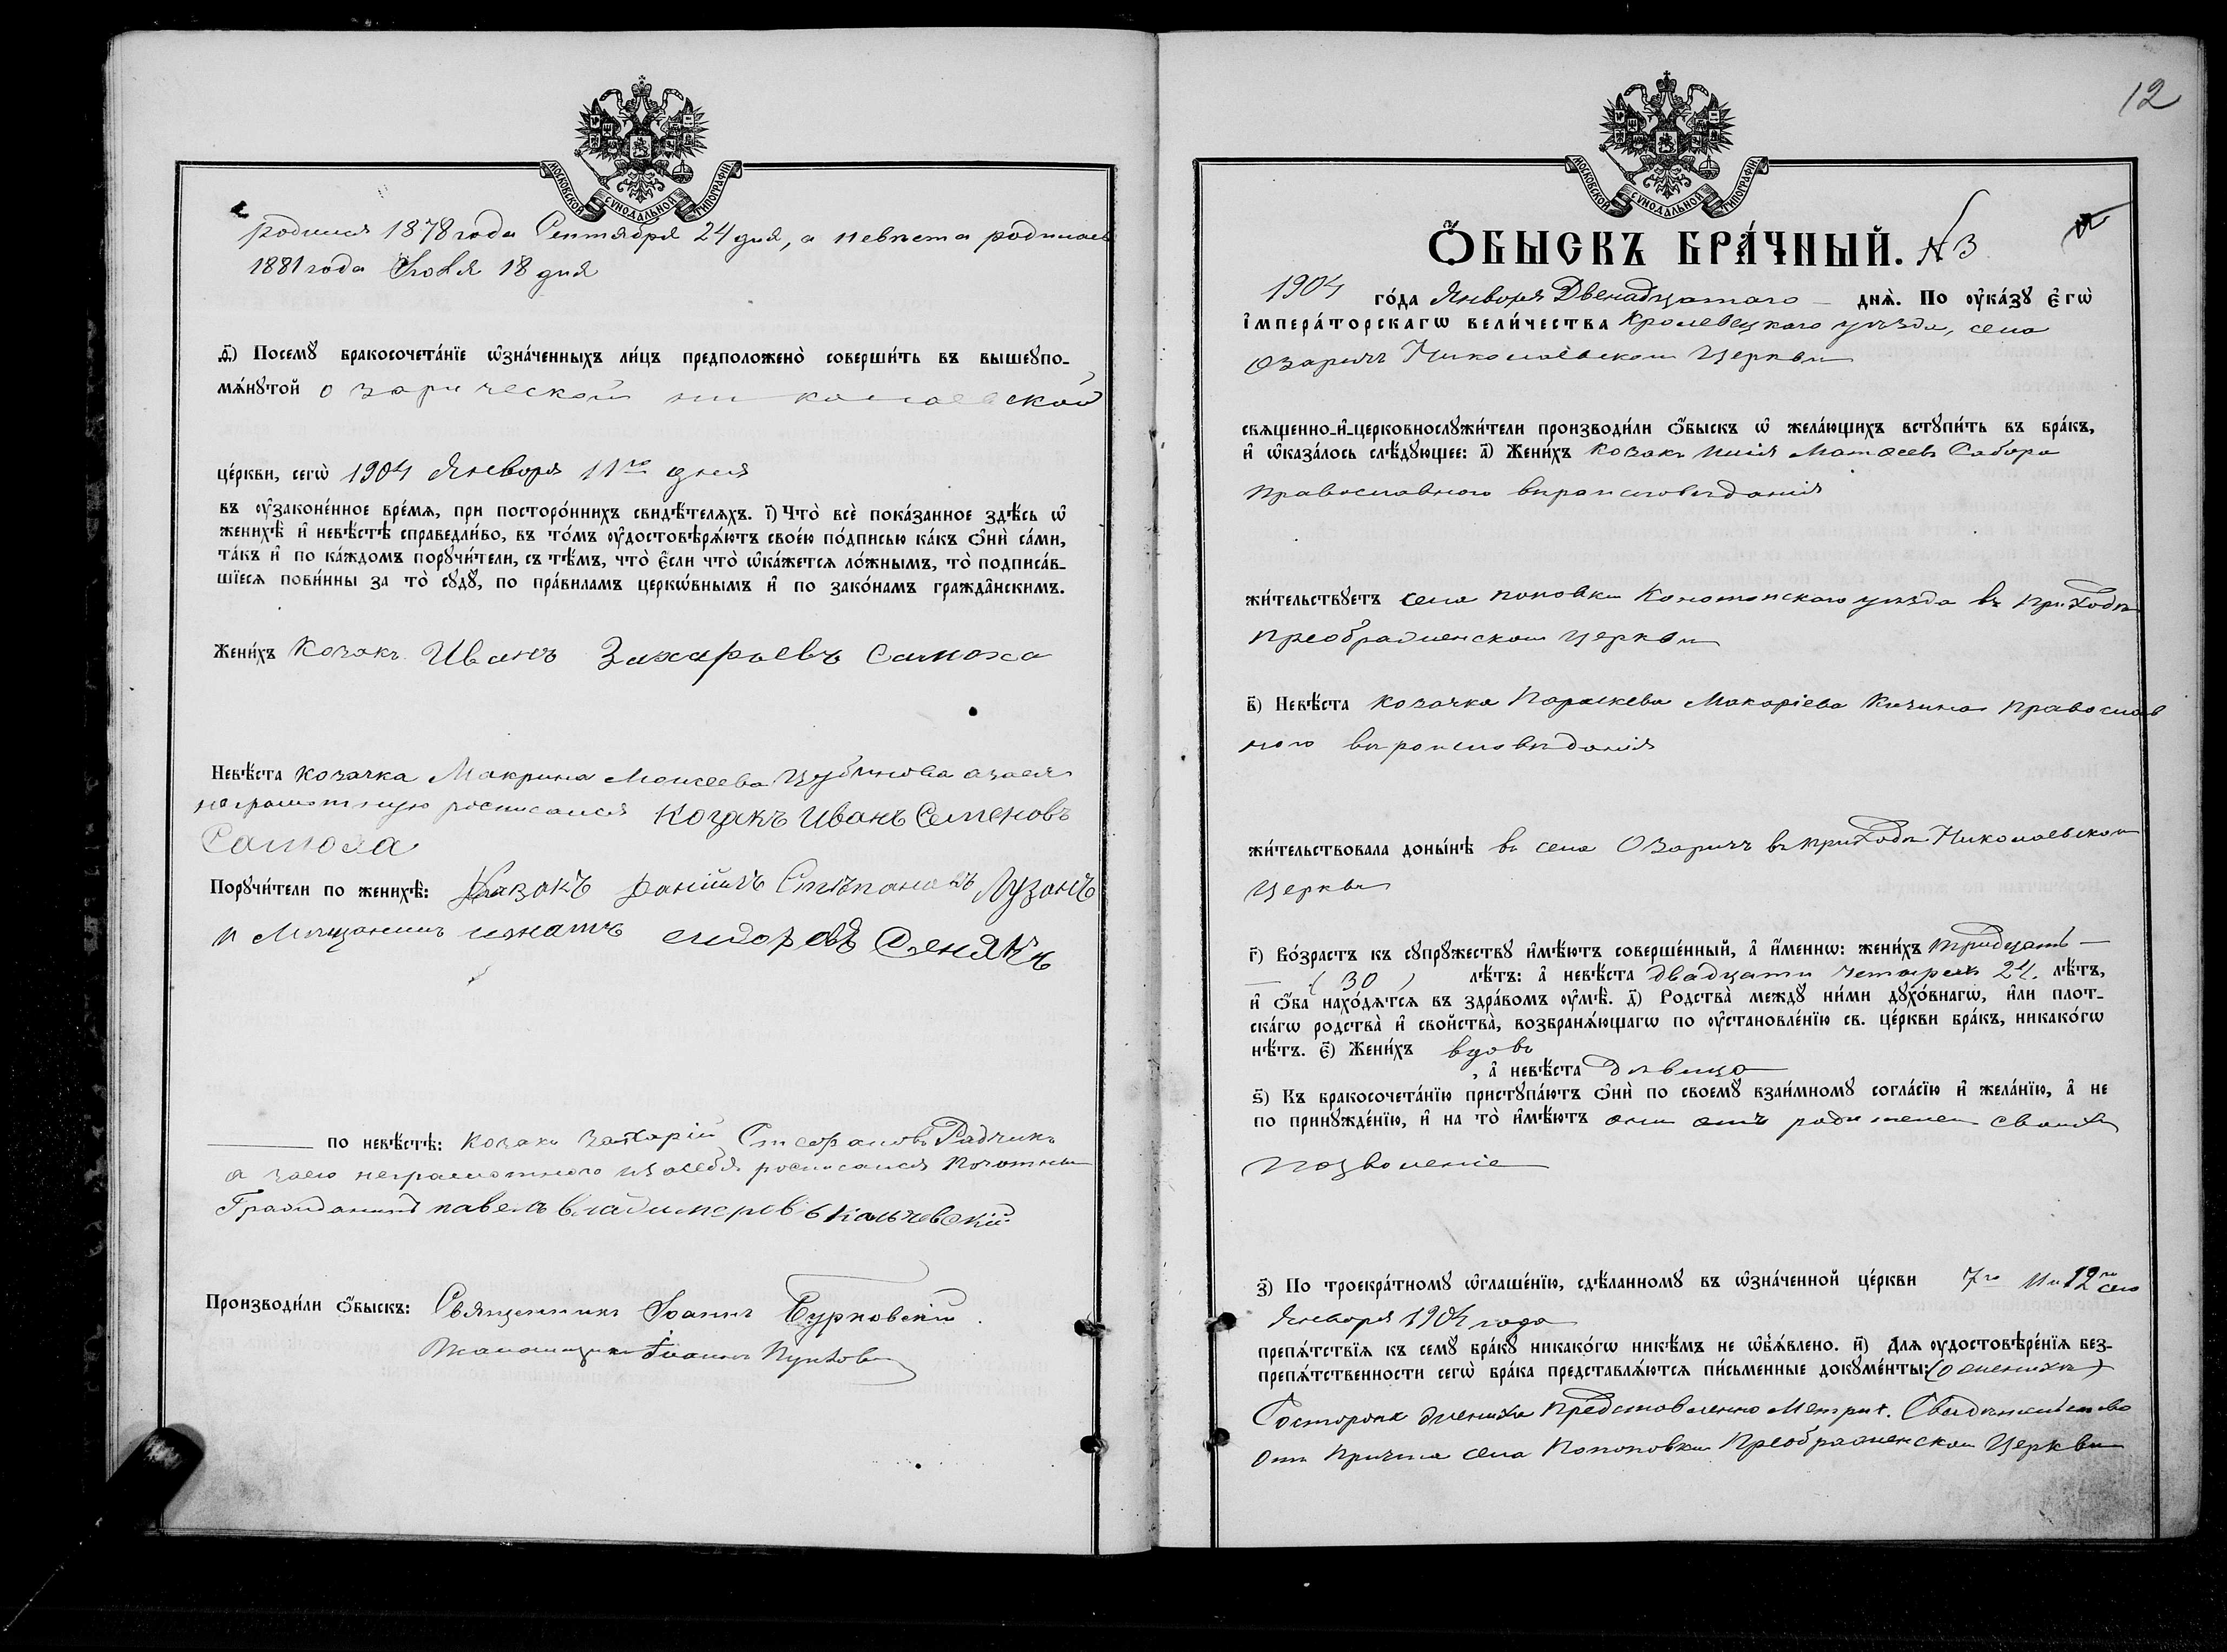 МОСКОВСКОЙ СѴНОДАЛЬНОЙ ТИПОГРАФІИ
родился 1878 года Сентября 24 дня, а невѣста родилась
1881 года Іюля 18 дня
д҃) Посемꙋ бракосочета́нїе ѡ҆зна́ченныхъ ли́цъ предположено̀ соверши́ть въ вышеꙋпо-
мѧ́нꙋтой озарической николаевской
це́ркви, сегѡ̀ 1904 Января 11го дня
въ ᲂу҆законе́нное вре́мѧ, при посторо́ннихъ свидѣ́телѧхъ. і҃) Что̀ всѐ пока́занное здѣ́сь ѡ҆
женихѣ̀ и҆ невѣ́стѣ справедли́во, въ то́мъ ᲂу҆достовѣрѧ́ютъ свое́ю по́дписью ка́къ ѻ҆нѝ са́ми,
та́къ и҆ по ка́ждомъ порꙋчи́тели, съ тѣ́мъ, что̀ є҆́сли что̀ ѡ҆ка́жетсѧ ло́жнымъ, то̀ подписа́в-
шїесѧ пови́нны за то̀ сꙋдꙋ̀, по пра́виламъ церкѡ́внымъ и҆ по зако́намъ гражда̂нскимъ.
Жени́хъ Козакъ Иванъ Захарьевъ Самоха
Невѣ́ста козачка Макрина Моисеева а за нея
неграмотную росписался Козакъ Иванъ Семеновъ
Порꙋчи́тели по женихѣ̀: Казакъ Данiилъ Степановъ Лузанъ
и Мѣщанинъ игнатъ сидоровъ
по невѣ́стѣ: козакъ Захарій Стефановъ Радчикъ
а за его неграмотного и за себя росписался Почотный
Гражданинъ павелъ владимеровъ
Производи́ли ѻ҆́быскъ: Священникъ Іоаннъ Бурковскій
Псаломщикъ Іоаннъ
12
МОСКОВСКОЙ СѴНОДАЛЬНОЙ ТИПОГРАФІИ
Ѻ҆БЫСКЪ БРА́ЧНЫЙ. №3
1904 го́да Января Двенадцатаго — днѧ̀. По ᲂу҆ка́зꙋ є҆гѡ̀
і҆мпера́торскагѡ вели́чества Кролевецкаго уѣзда, села
Озаричъ Николаевской Церкви
свѧщенно-и҆-церковнослꙋжи́тели производи́ли ѻ҆́быскъ ѡ҆ жела́ющихъ встꙋпи́ть въ бра́къ,
и҆ ѡ҆каза́лось слѣ́дꙋющее: а҃) Жени́хъ Козакъ Илія Матѳеевъ Сабора
православного вѣроисповѣданія
жи́тельствꙋетъ села поповки Конотопскаго уѣзда въ приходѣ
преображенской церкви
в҃) Невѣ́ста Козачка Параскева Макаріева Кичина православ
ного вѣроисповѣданія
жи́тельствовала доны́нѣ въ села Озаричъ въ приходѣ Николаевской
Церкви
г҃) Во́зрастъ къ сꙋпрꙋжествꙋ и҆мѣ́ютъ соверше́нный, а҆ и҆́меннѡ: жени́хъ тридцать —
— (30) лѣ́тъ: а҆ невѣ́ста двадцати четырехъ 24. лѣ́тъ,
и҆ ѻ҆́ба нахо́дѧтсѧ въ здра́вомъ ᲂу҆мѣ̀. д҃) Родства̀ междꙋ̀ ни́ми дꙋхо́внагѡ, и҆́ли плот-
ска́гѡ родства̀ и҆ свойства̀, возбранѧ́ющагѡ по ᲂу҆становле́нїю св. це́ркви бра́къ, никако́гѡ
нѣ́тъ. є҃) Жени́хъ вдовъ
, а҆ невѣ́ста дѣвица
ѕ҃) Къ бракосочета́нїю пристꙋпа́ютъ ѻ҆нѝ по своемꙋ̀ взаи́мномꙋ согла́сїю и҆ жела́нїю, а҆ не
по принꙋжде́нїю, и҆ на то̀ и҆мѣ́ютъ они отъ родителей своихъ
позволеніе
з҃) По троекра́тномꙋ ѡ҆глаше́нїю, сдѣ́ланномꙋ въ ѡ҆зна́ченной це́ркви 7го 11 и 12го сего
Января 1904 года
препѧ́тствїѧ къ семꙋ̀ бра́кꙋ никако́гѡ никѣ́мъ не ѡ҆б̾ѧ́влено. и҃) Длѧ ᲂу҆достовѣре́нїѧ без-
препѧ́тственности сегѡ̀ бра́ка представлѧ́ютсѧ пи́сьменные докꙋме́нты: (о женихѣ)
Состороны жениха Представленно Метрич. Свидѣтельство
Отъ Причта села Попоповки Преображенской Церкви